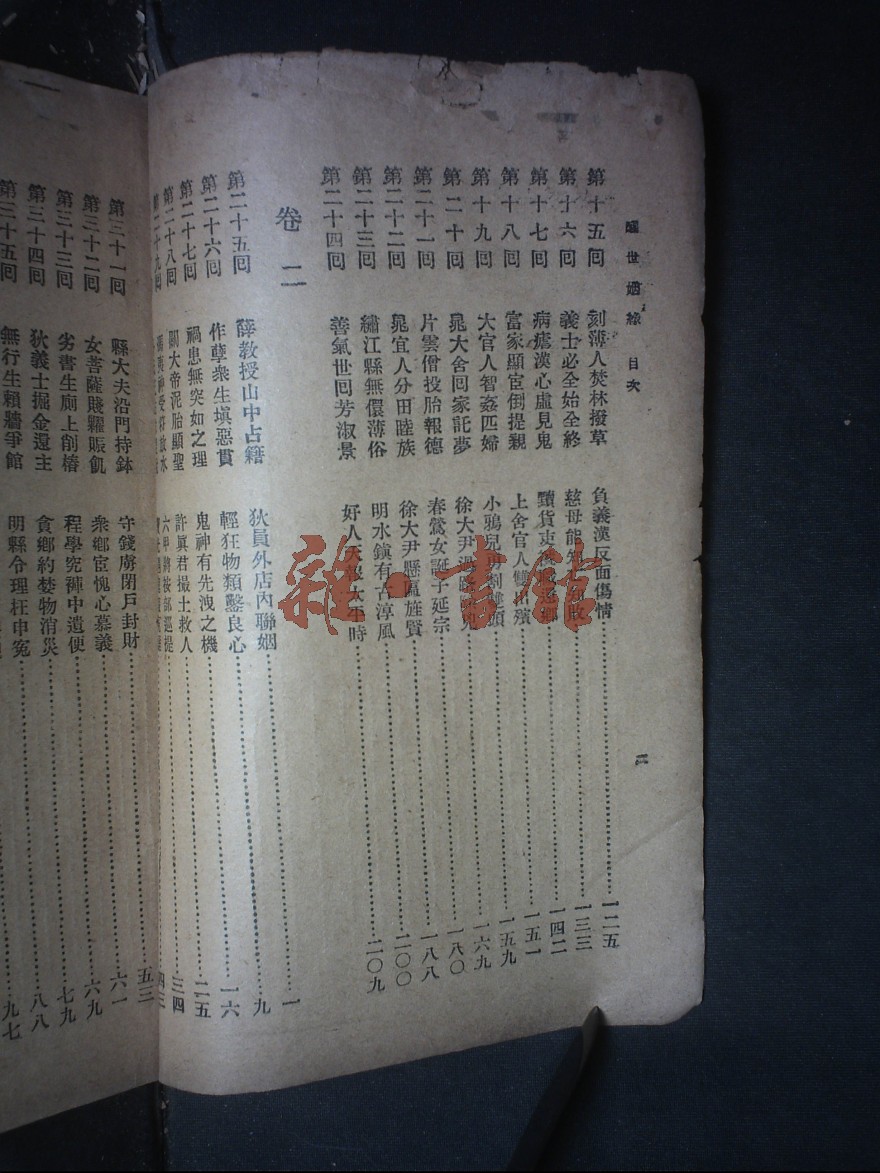 醒世姻緣 目次
二
第十五回 刻薄人焚林撥草 負義漢反面傷情 一二五
第十六回 義士必全始全終 慈母能知 敗 一三三
第十七回 病瘧漢心虛見鬼 黷貨吏 鄉 一四二
第十八回 富家顯宦倒提親 上舍官人雙 殯 一五一
第十九回 大官人智姦匹婦 小鴉兒 割雙頭 一五九
第二十回 晁大舍回家託夢 徐大尹過路 兇 一六九
第二十一回 片雲僧投胎報德 春鶯女誕子延宗 一八〇
第二十二回 晁宜人分田睦族 徐大尹懸匾旌賢 一八八
第二十三回 繡江縣無儇薄俗 明水鎭有古淳風 二〇〇
第二十四回 善氣世回芳淑景 好人天報太平時 二〇九
卷二
第二十五回 薛教授山中占籍 狄員外店內聯姻 一
第二十六回 作孽衆生塡惡貫 輕狂物類鑿良心 九
第二十七回 禍患無突如之理 鬼神有先洩之機 一六
第二十八回 關大帝泥胎顯聖 許眞君撮土救人 二五
二十九回 放水 六甲將按部巡堤 三四
四三
第三十一回 縣大夫沿門持鉢 守錢虜閉戶封財 五三
第三十二回 女菩薩賤糶賑飢 衆鄉宦愧心慕義 六一
第三十三回 劣書生廁上削椿 程學究褲中遺便 六九
第三十四回 狄義士掘金還主 貪鄉約婪物消災 七九
第三十五回 無行生賴牆爭館 明縣令理枉申寃 八八
九七
雜·書館